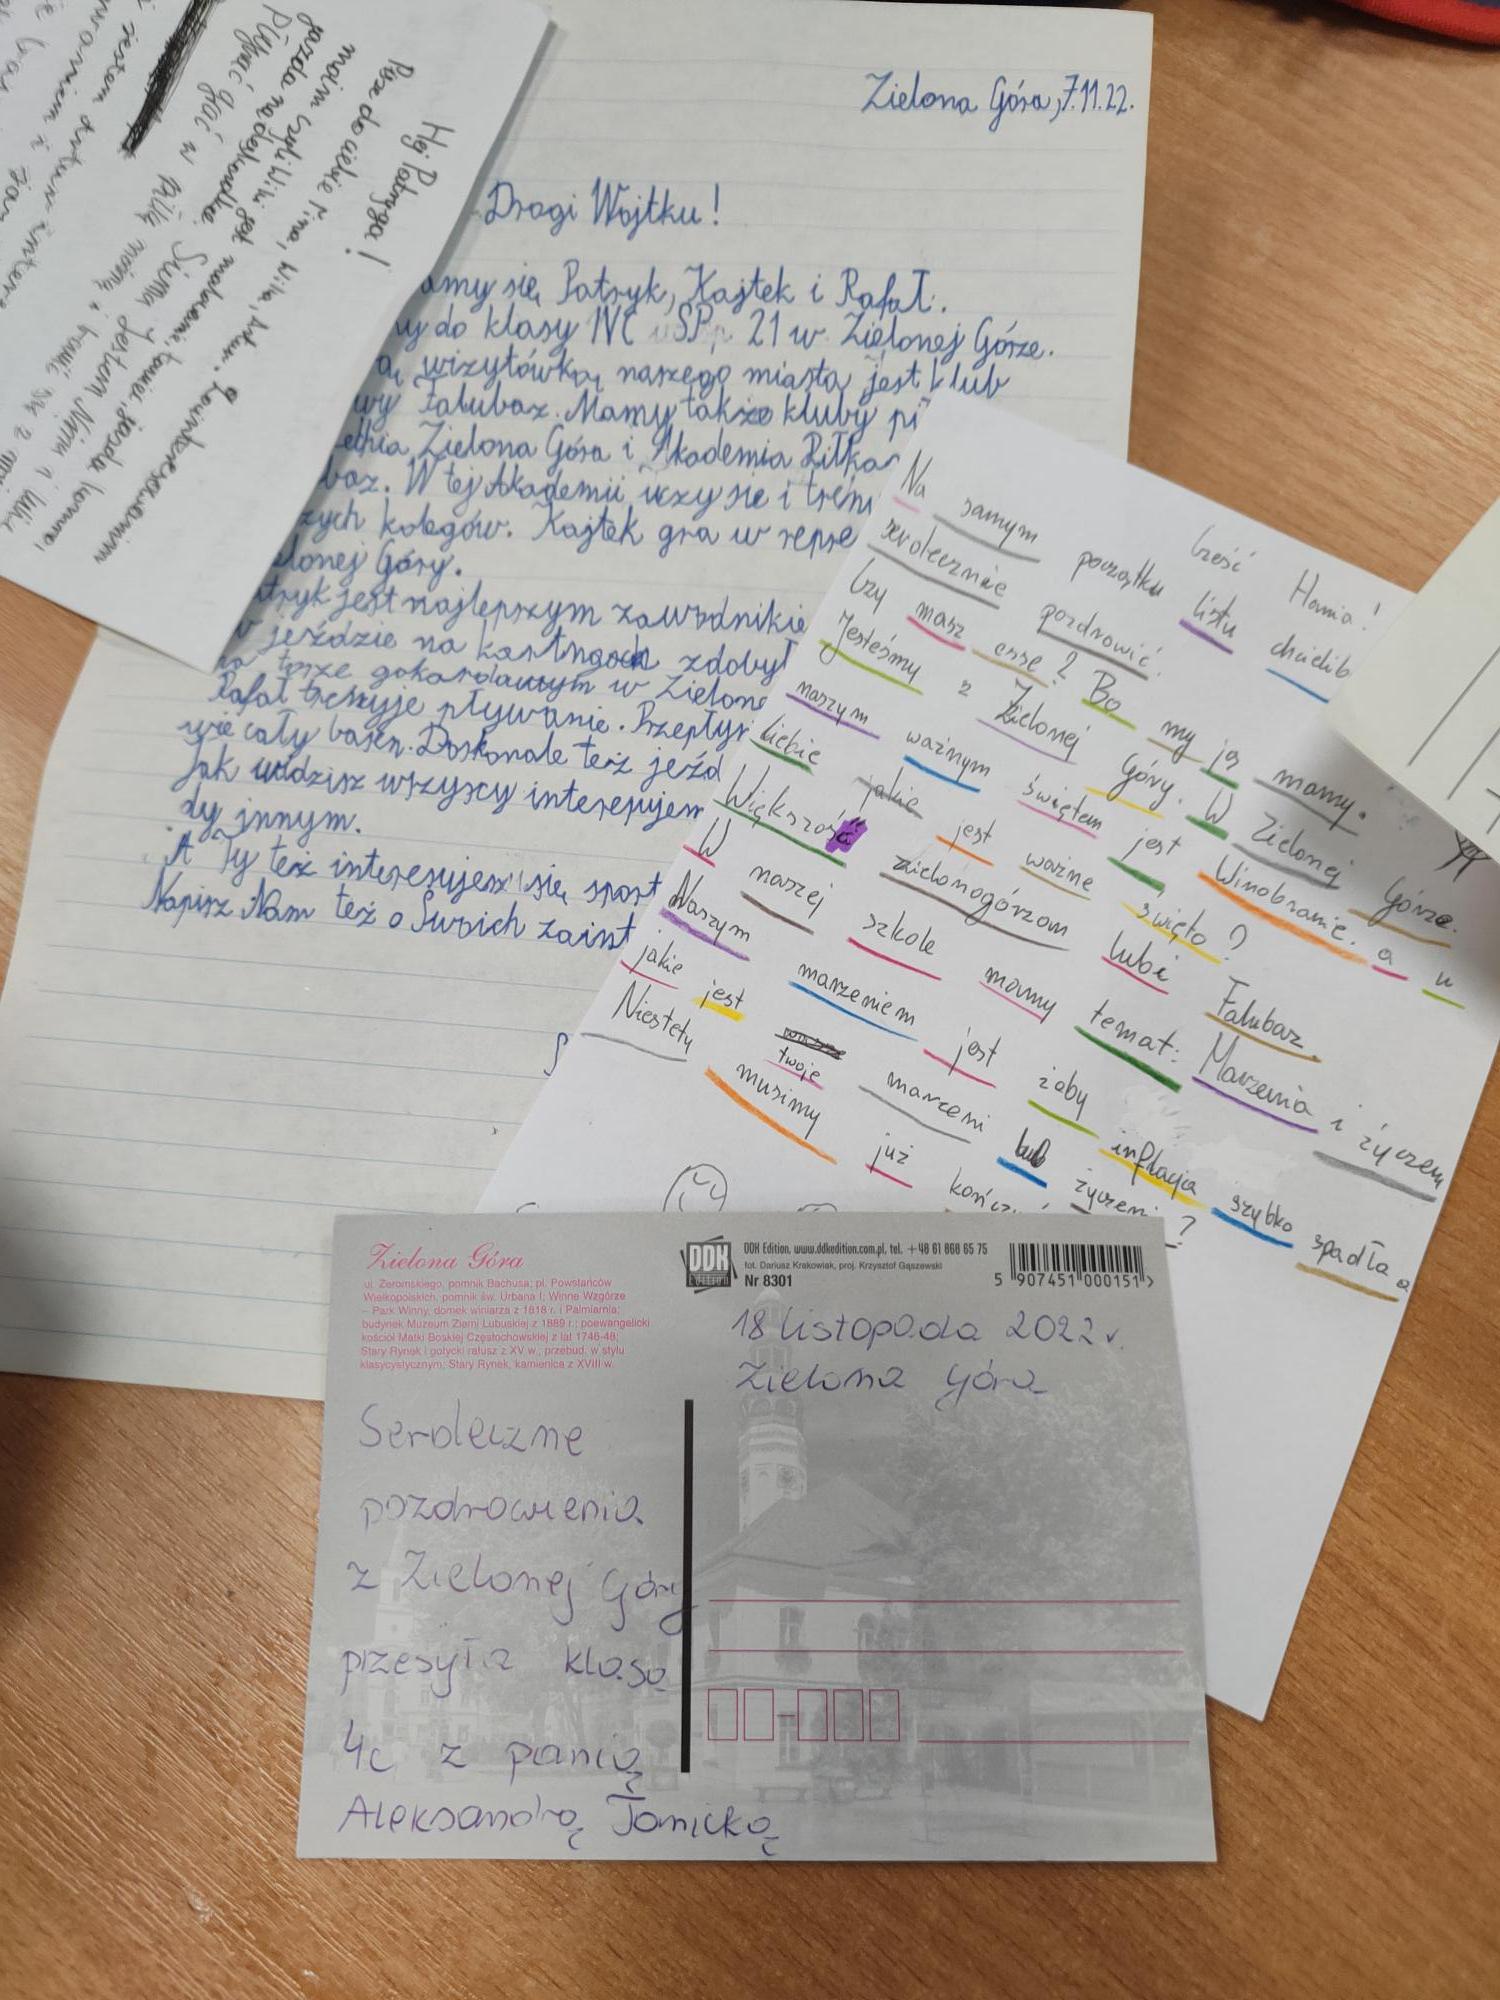 Hej Patryga!
Pisze do ciebie Nina, Wila, Artur. Zainteresowaniem
moim czyli Wili jest malowanie, taniec, jazda konno,
jazda na deskorolce. Siema Jestem Nina i lubie
Pływać Grać w piłkę
jestem Artur
Zielona Góra, 7.11.22.
Drogi Wojtku!
amy się Patryk, Kajtek i Rafał.
y do klasy IVC SP 21 w Zielonej Górze.
ą wizytówką naszego miasta jest klub
wy Falubaz. Mamy także kluby pi
echia Zielona Góra i Akademia Piłkar
baz. W tej Akademii uczy się i tren
zych kolegów. Kajtek gra w repre
elonej Góry.
tryk jest najlepszym zawodnikie
w jeździe na kartingach zdobył
na torze gokardowym w Zielone
Rafał trenuje pływanie. Przepłyn
wie cały basen. Doskonale też jeźd
Jak widzisz wszyscy interesujem
dy innym.
A Ty też interesujesz się sport
Napisz Nam też o Swoich zaint
Cześć Hania!
Na samym początku listu chcielib
serdecznie pozdrowić.
Czy masz esse? Bo my jej mamy.
Jesteśmy z Zielonej Góry. W Zielonej Górze
naszym ważnym świętem jest Winobranie. a u
Ciebie jakie jest ważne święto?
Większość zielonogórzan lubi Falubaz.
W naszej szkole mamy temat: Marzenia i życzeni
Naszym marzeniem jest żeby inflacja szybko spadła a
jakie jest twoje marzeni lub życzeni?
Niestety musimy już kończy
Zielona Góra
ul. Żeromskiego, pomnik Bachusa; pl. Powstańców
Wielkopolskich, pomnik św. Urbana I; Winne Wzgórze
– Park Winny, domek winiarza z 1818 r. i Palmiarnia;
budynek Muzeum Ziemi Lubuskiej z 1889 r.; poewangelicki
kościół Matki Boskiej Częstochowskiej z lat 1746-48;
Stary Rynek i gotycki ratusz z XV w., przebud. w stylu
klasycystycznym; Stary Rynek, kamienica z XVIII w.
DDK Edition
DDK Edition, www.ddkedition.com.pl, tel. +48 61 868 65 75
fot. Dariusz Krakowiak, proj. Krzysztof Gąszewski
Nr 8301
5 907451 000151 >
18 listopada 2022 r.
Zielona Góra
Serdeczne
pozdrowienia
z Zielonej Góry
przesyła klasa
4c z panią
Aleksandrą Janicką